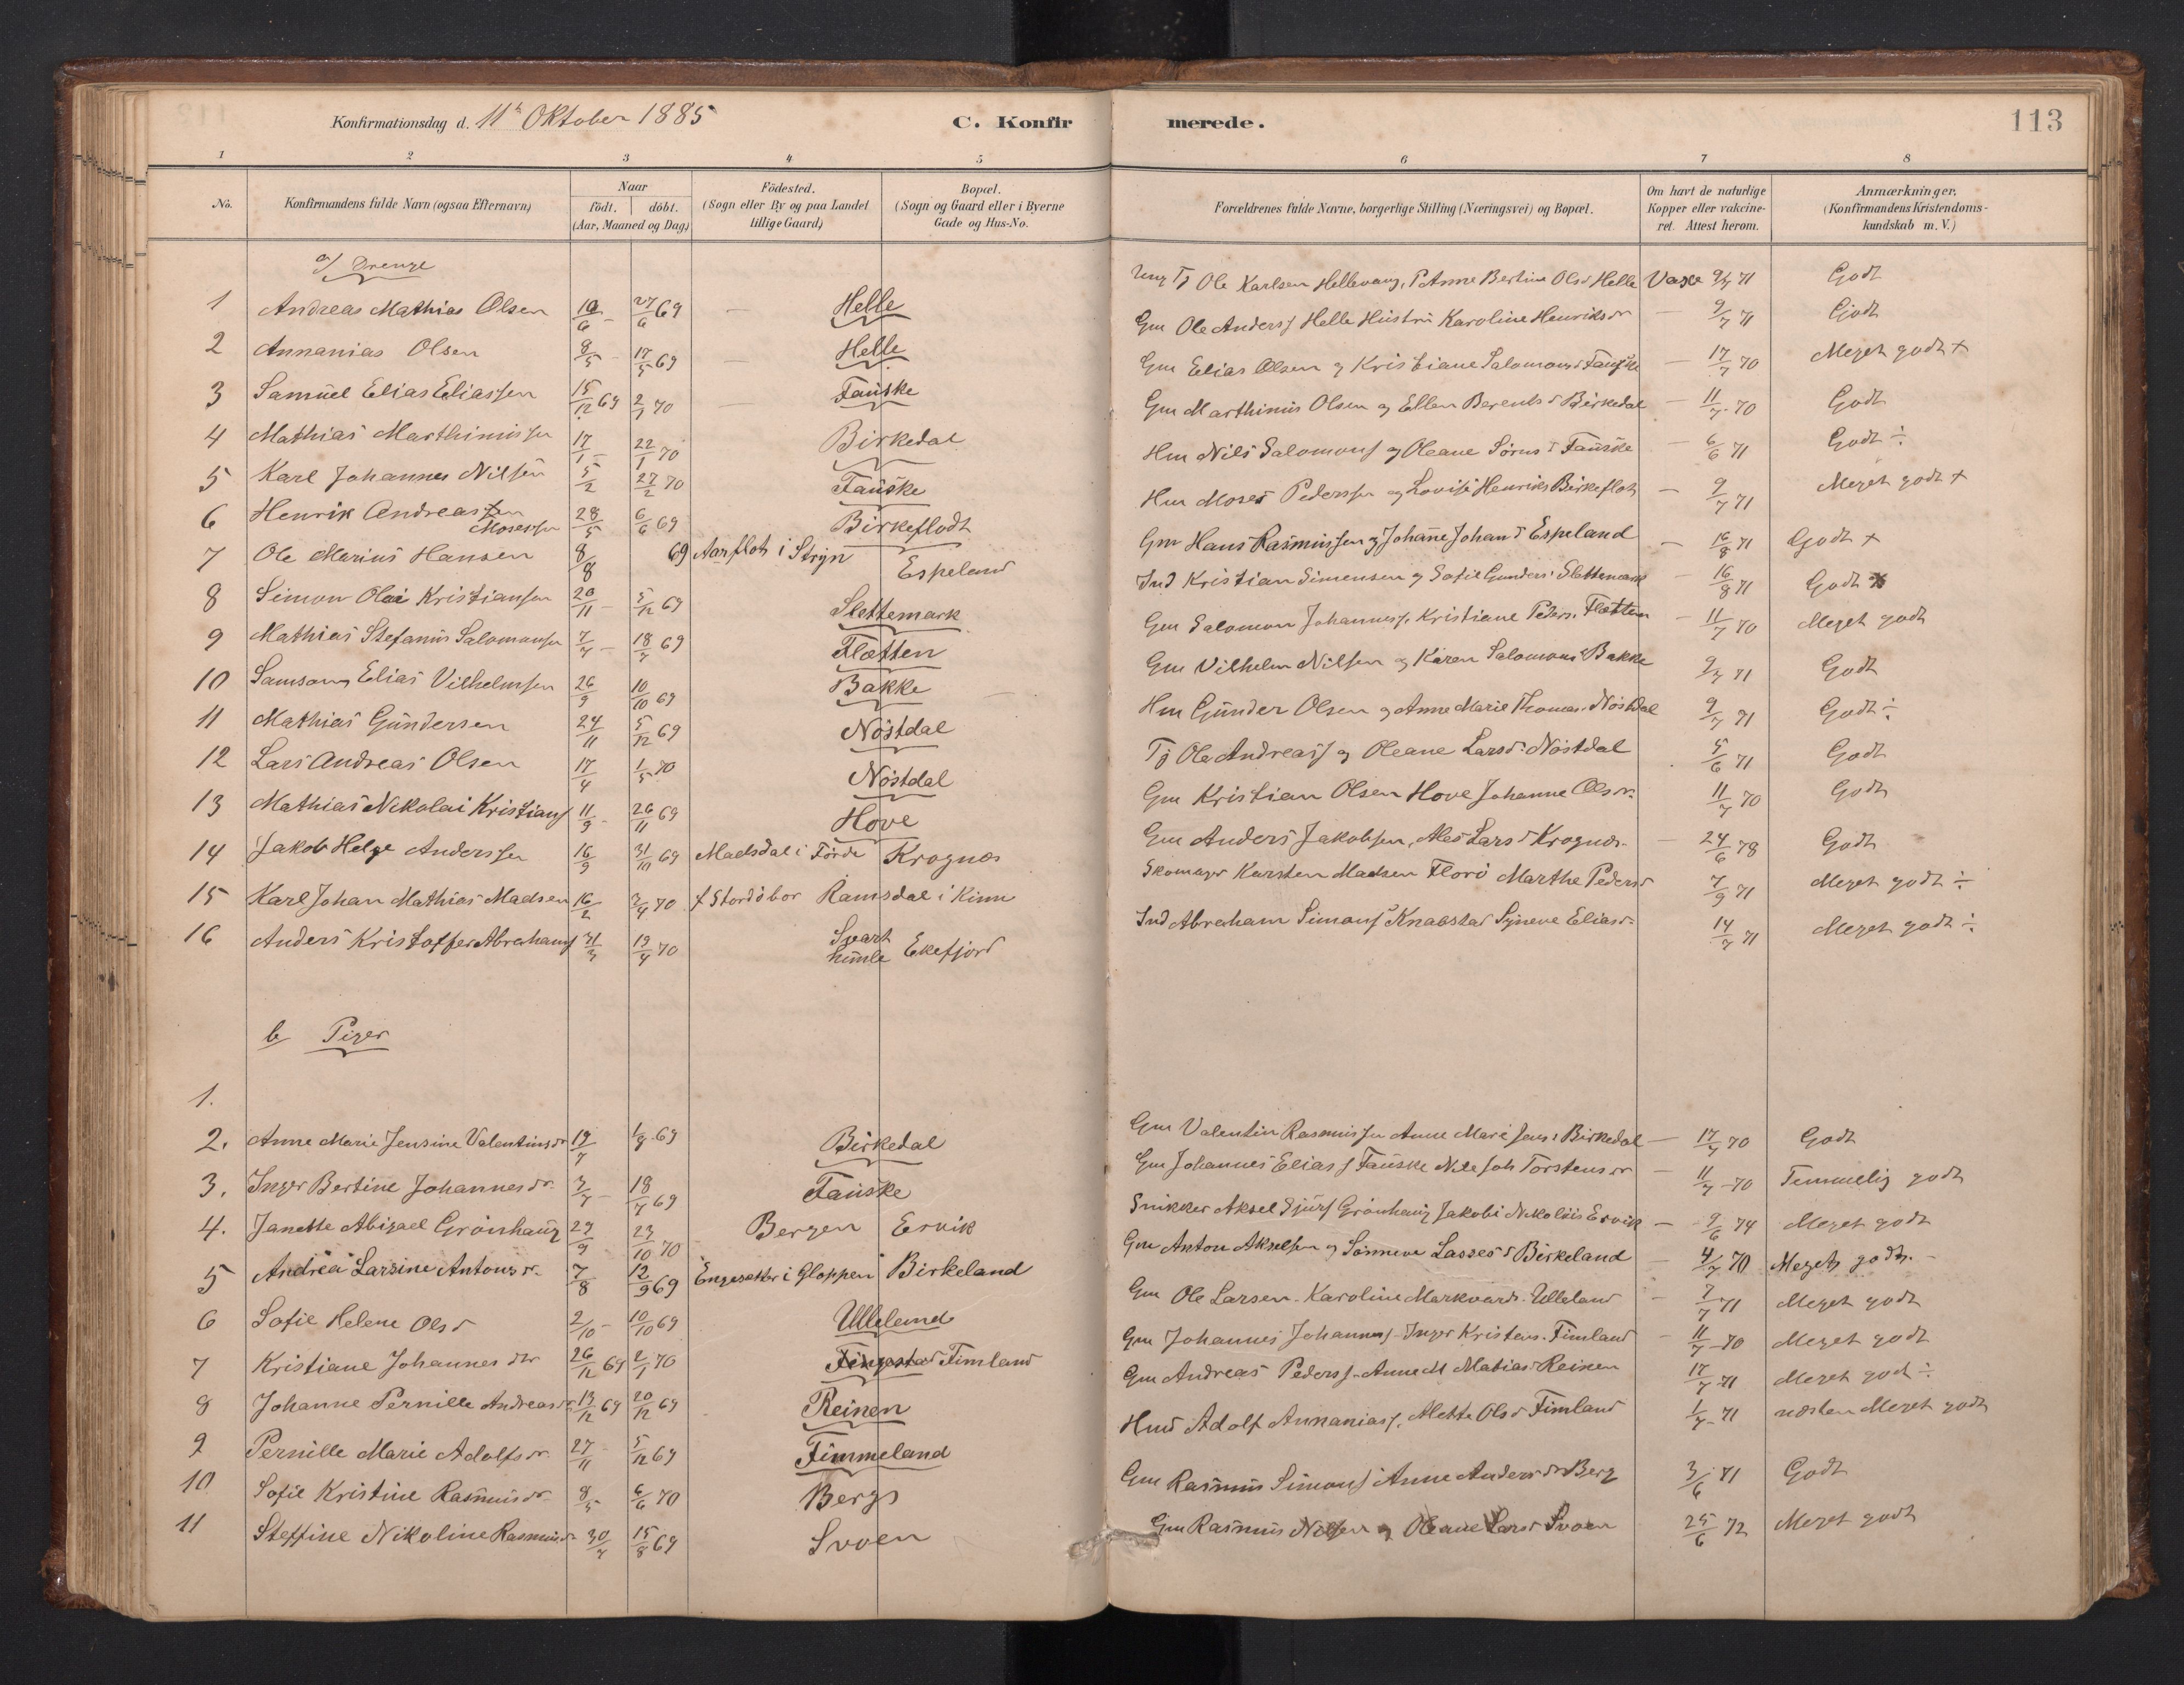 Konfirmationsdag d. 11te Oktober 1885 C. Konfirmerede. 113
1 2 3 4 5 6 7 8
No. Konfirmandens fulde Navn (ogsaa Efternavn) Naar Födt. döbt. (Aar, Maaned og Dag) Födested. (Sogn eller By og paa Landet tillige Gaard) Bopæl. (Sogn og Gaard eller i Byerne Gade og Hus-No. Forældrenes fulde Navne, borgerlige Stilling (Næringsvei) og Bopæl. Om havt de naturlige Kopper eller vakcineret. Attest herom. Anmærkninger. (Konfirmandens Kristendomskundskab m. V.)
a/ Drenge
1 Andreas Mathias Olsen 10/6 - 27/6 69 — Helle Ung Tj Ole Karlsen Hellevang, P Anne Bertine Olsd Helle Vaxe 9/7 71 Godt
2 Annanias Olsen 8/5 - 17/5 69 — Helle Gm Ole Anders Helle Hustru Karoline Henriksdr — 9/7 71 Godt
3 Samuel Elias Eliassen 15/12 69 2/1 70 — Fauske Gm Elias Olsen og Kristiane Salomonsd Fauske — 17/7 70 Meget godt +
4 Mathias Marthinussen 17/1 - 22/1 70 Birkedal Gm Marthinus Olsen og Ellen Berentsd Birkedal — 11/7 70 Godt
5 Karl Johannes Nilsen 5/2 27/2 70 Fauske Hm Nils Salomons og Oleane Sörensd Fauske — 6/6 71 Godt ÷
6 Henrik Andreas Mosessen 28/5 6/6 69 Birkeflodt Hm Moses Pedersen og Lovise Henriks Birkeflot — 9/7 71 Meget godt +
7 Ole Marius Hansen 8/8 69 Aarflot i Stryn Espeland Gm Hans Rasmussen og Johanne Johand Espeland — 16/8 71 Godt +
8 Simon Olai Kristiansen 20/11 - 5/12 69 Slettemark Ind Kristian Simensen og Sofie Gunders Slettemark — 16/8 71 Godt
9 Mathias Stefanus Salomonsen 7/7 - 18/7 69 Flætten Gm Salomon Johanness, Kristiane Peders. Flætten — 11/7 70 Meget godt
10 Samson Elias Vilhelmsen 26/9 10/10 69 Bakke Gm Vilhelm Nilsen og Karen Salomonsd Bakke 9/7 71 Godt
11 Mathias Gundersen 24/11 5/12 69 Nöstdal Hm Gunder Olsen og Anne Marie Thomas. Nöstdal 9/7 71 Godt ÷
12 Lars Andreas Olsen 17/4 1/5 70 Nöstdal Tj Ole Andreass og Oleane Larsd. Nöstdal 5/6 71 Godt
13 Mathias Nikolai Kristians 11/9 - 26/11 69 Hove Gm Kristian Olsen Hove Johanne Olsdr. 11/7 70 Godt
14 Jakob Helge Anderssen 16/9 31/10 69 Maelsdal i Förde Krognæs Gm Anders Jakobsen, Ales Larsd Krognæs. — 24/6 78 Godt
15 Karl Johan Mathias Madsen 16/2 3/4 70 Stordöbor Ramsdal i Kinn Skomager Karsten Madsen Florö Marthe Pedersd 7/9 71 Meget godt ÷
16 Anders Kristoffer Abrahams 31/3 19/4 70 Svarthumle Ekefjord Ind Abraham Simons Knabstad Synneve Eliasd. 14/7 71 Meget godt ÷
b Piger
1.
2. Anne Marie Jensine Valentinsdr 19/7 1/9 69 Birkedal Gm Valentin Rasmussen Anne Marie Jens: Birkedal — 17/7 70 Godt
3. Inger Bertine Johannesdr. 3/7 - 18/7 69 Fauske Gm Johannes Elias Fauske Nille Joh Torstensdr — 11/7 70 Temmelig godt
4. Janette Abigael Grönhaug 29/9 23/10 70 Bergen Ervik Snikker Aksel Sjurs Grönhaug Jakobi Nikolais Ervik — 9/6 74 Meget godt
5 Andrea Larsine Antonsdr. 7/8 12/9 69 Engesetter i Gloppen Birkeland Gm Anton Akselsen og Sönneve Lassesd Birkeland — 4/7 70 Meget godt. -
6 Sofie Helene Olsd 2/10 - 10/10 69 Ulleland Gm Ole Larsen - Karoline Markvards. Ulleland — 7/7 71 Meget godt
7 Kristiane Johannesdtr 26/12 69 2/1 70 Fimland Gm Johannes Johannes - Inger Kristens. Fimland — 11/7 70 Meget godt
8 Johanne Pernille Andreasdr 13/12 69 20/12 69 Reinen Gm Andreas Peders - Anne M Matias Reinen 17/7 71 Meget godt ÷
9 Pernille Marie Adolfsdr. 27/11 5/12 69 Fimmeland Hmd Adolf Annanias, Alette Olsd Fimland 1/7 71 næsten Meget godt
10 Sofie Kristine Rasmusdr. 8/5 6/6 70 Bergs Gm Rasmus Simons Anne Andersdr Berg 3/6 71 Godt
11 Steffine Nikoline Rasmusdr 30/7 15/8 69 Svoen Gm Rasmus Nilsen og Oleane Larsd Svoen 25/6 72 Meget godt